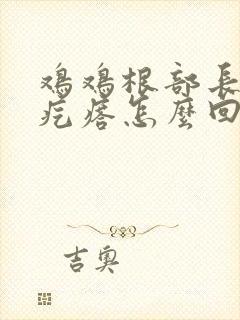 鸡鸡根部長
疙瘩怎麼回
吉奥